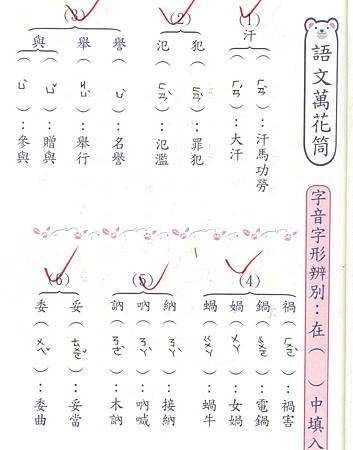 語文萬花筒
字音字形辨別：在（　）中填入
(1)
汗
（ㄏㄢˋ）：汗馬功勞
（ㄏㄢˊ）：大汗
(2)
犯（ㄈㄢˋ）：罪犯
氾（ㄈㄢˋ）：氾濫
(3)
譽（ㄩˋ）：名譽
舉（ㄐㄩˇ）：舉行
與
（ㄩˇ）：贈與
（ㄩˋ）：參與
(4)
禍（ㄏㄨㄛˋ）：禍害
鍋（ㄍㄨㄛ）：電鍋
媧（ㄨㄚ）：女媧
蝸（ㄍㄨㄚ）：蝸牛
(5)
納（ㄋㄚˋ）：接納
吶（ㄋㄚˋ）：吶喊
訥（ㄋㄜˋ）：木訥
(6)
妥（ㄊㄨㄛˇ）：妥當
委（ㄨㄟˇ）：委曲